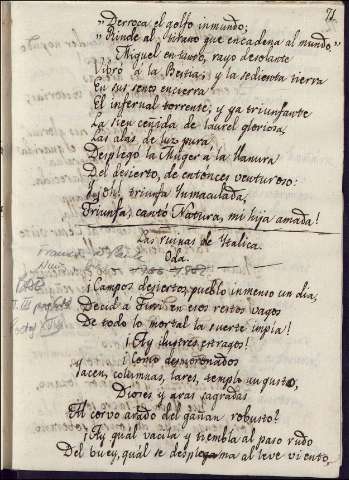 71.
"Derroca el golfo inmundo;
"Rinde al titano que encadena al mundo."
Miguel en tanto, rayo desolante
Vibró á la Bestia; y la sedienta tierra
En sus senos encierra
El infernal torrente; y ya triunfante
La sien ceñida de laurel gloriosa,
Las alas de luz pura
Desplegó la Muger á la llanura
Del desierto, de entonces venturoso:
¡Oh! triunfa Inmaculada,
Triunfa, cantó Natura, mi hija amada!
Las ruinas de Italica.
Oda.
¡Campos desiertos, pueblo inmenso un dia,
Decid á en esos restos vagos
De todo lo mortal la suerte impía!
¡Ay ilustres estragos!
¡Como desmoronados
Yacen, columnas, lares, templo augusto,
Dioses y aras sagradas
Al corvo arado del gañan robusto!
¡Ay quál vacila y tiembla al paso rudo
Del buey, quál se desploma al leve viento,